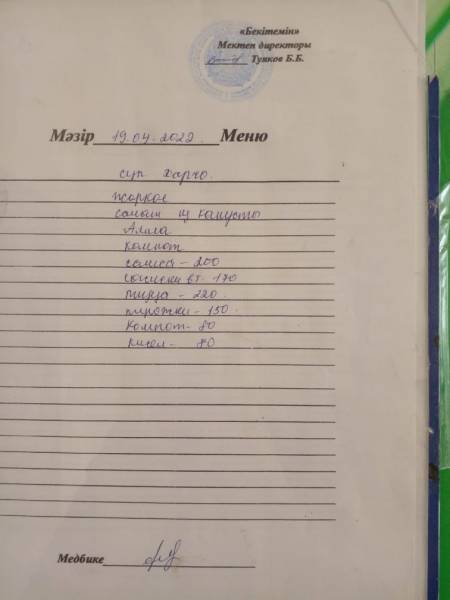 «Бекітемін»
Мектеп директоры
Туяков Б.Б.
Мәзір 19.04-2022. Меню
суп Харчо.
жаркое
салат из капусты
Алма
компот
самса - 200
сосиски в т. 170
пицца - 220.
пирожки - 150.
Компот - 80
Кисел - 80
Медбике